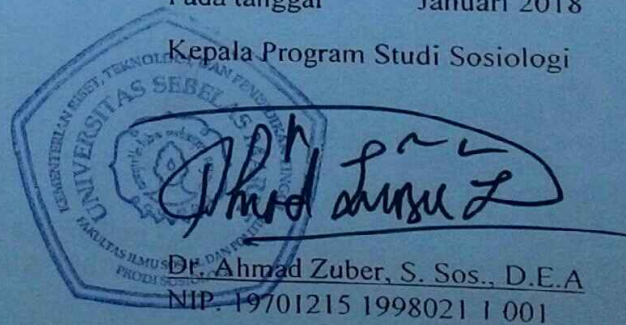 Pada tanggal Januari 2018
Kepala Program Studi Sosiologi
KEMENTERIAN RISET, TEKNOLOGI DAN PENDIDIKAN TINGGI
UNIVERSITAS SEBELAS
FAKULTAS ILMU SOSIAL DAN POLITIK
PRODI SOSIOLOGI
Dr. Ahmad Zuber, S. Sos., D.E.A
NIP. 19701215 1998021 1 001